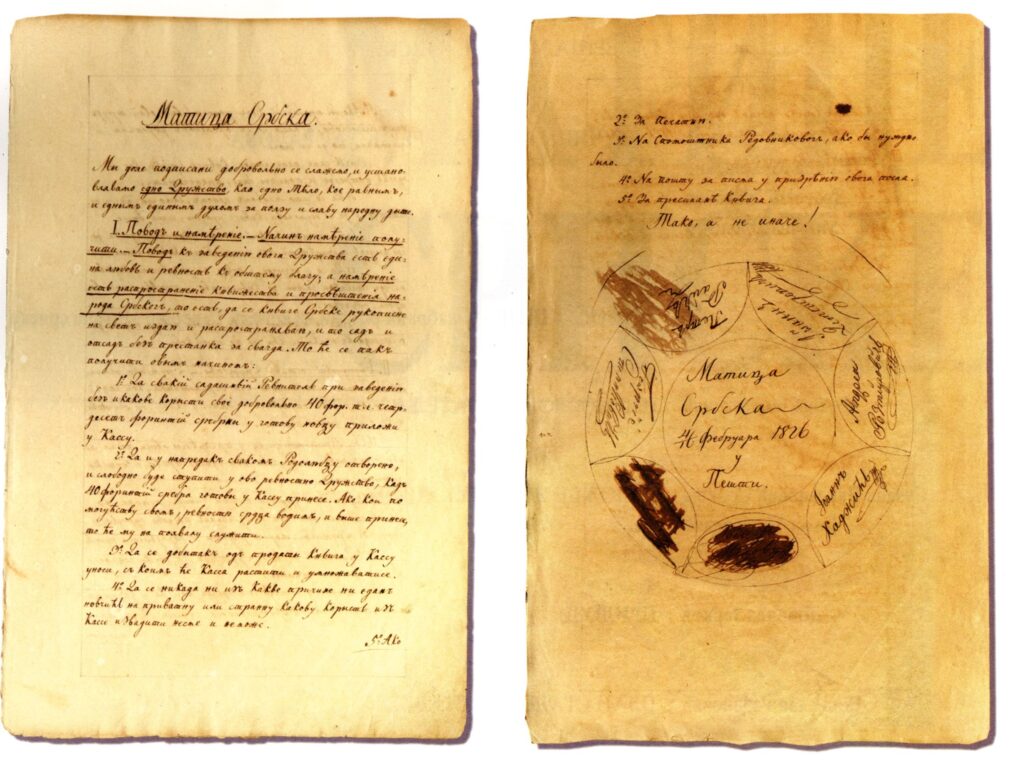 Матица Србска.
Мы доле подписани добровольно се слажемо, и устано-
влявамо едно Дружство, као едно Тѣло, кое равнимъ,
и єднимъ єдинимъ духомъ за ползу и славу народну дыше.
I. Поводъ и намѣренıе. — Начинъ намѣренıе полу-
чити. — Поводъ къ заведенıю овога Дружства єсть єди-
на любовь и ревность къ обштему благу; а намѣренıе
єсть распространенıе Книжества и просвѣштенıя на-
рода Србскогъ, то єсть, да се книге Србске рукописне
на светъ издаю и распространяваю, и то садъ и
отсадъ безъ престанка за свагда. То ће се пакъ
получити овымъ начиномъ:
1о. Да свакıй садашнıй Ревнитель при заведенıю
безъ икакове користи своє добровольно 40 фор. т. є. четр-
десетъ форинтıй сребра у готову новцу приложи
у Кассу.
2о. Да и у напредакъ свакомъ Родолюбцу отворено,
и слободно буде ступити у ово ревностно Дружство, кадъ
40 форинтıй сребра готовы у Кассу принесе. Ако кои по
могућству свомъ, ревностıю срдца водимъ, и выше принесе,
то ће му на похвалу служити.
3о. Да се добытакъ одъ продаıтıя Книга у Кассу
уноси, съ коимъ ће Касса растити и умножаватисе.
4о. Да се никада ни изъ какве причине ни єданъ
новчићъ на приватну или страну какову користь изъ
Кассе извадити несме и неможе.
5о. Ако
2о. За Печатню.
3о. На Спомоштника Редовниковогъ, ако бы нуждно
было.
4о. На пошту за писма у призрѣнıю овога посла.
5о. За пресиланѣ Книга.
Тако, а не иначе!
Петръ
Раићъ
Іоаннъ
Андрея
Розмировićъ
Іоаннъ
Хаджићъ
Матица
Србска
4/16 Фебруара 1826
у
Пешти.